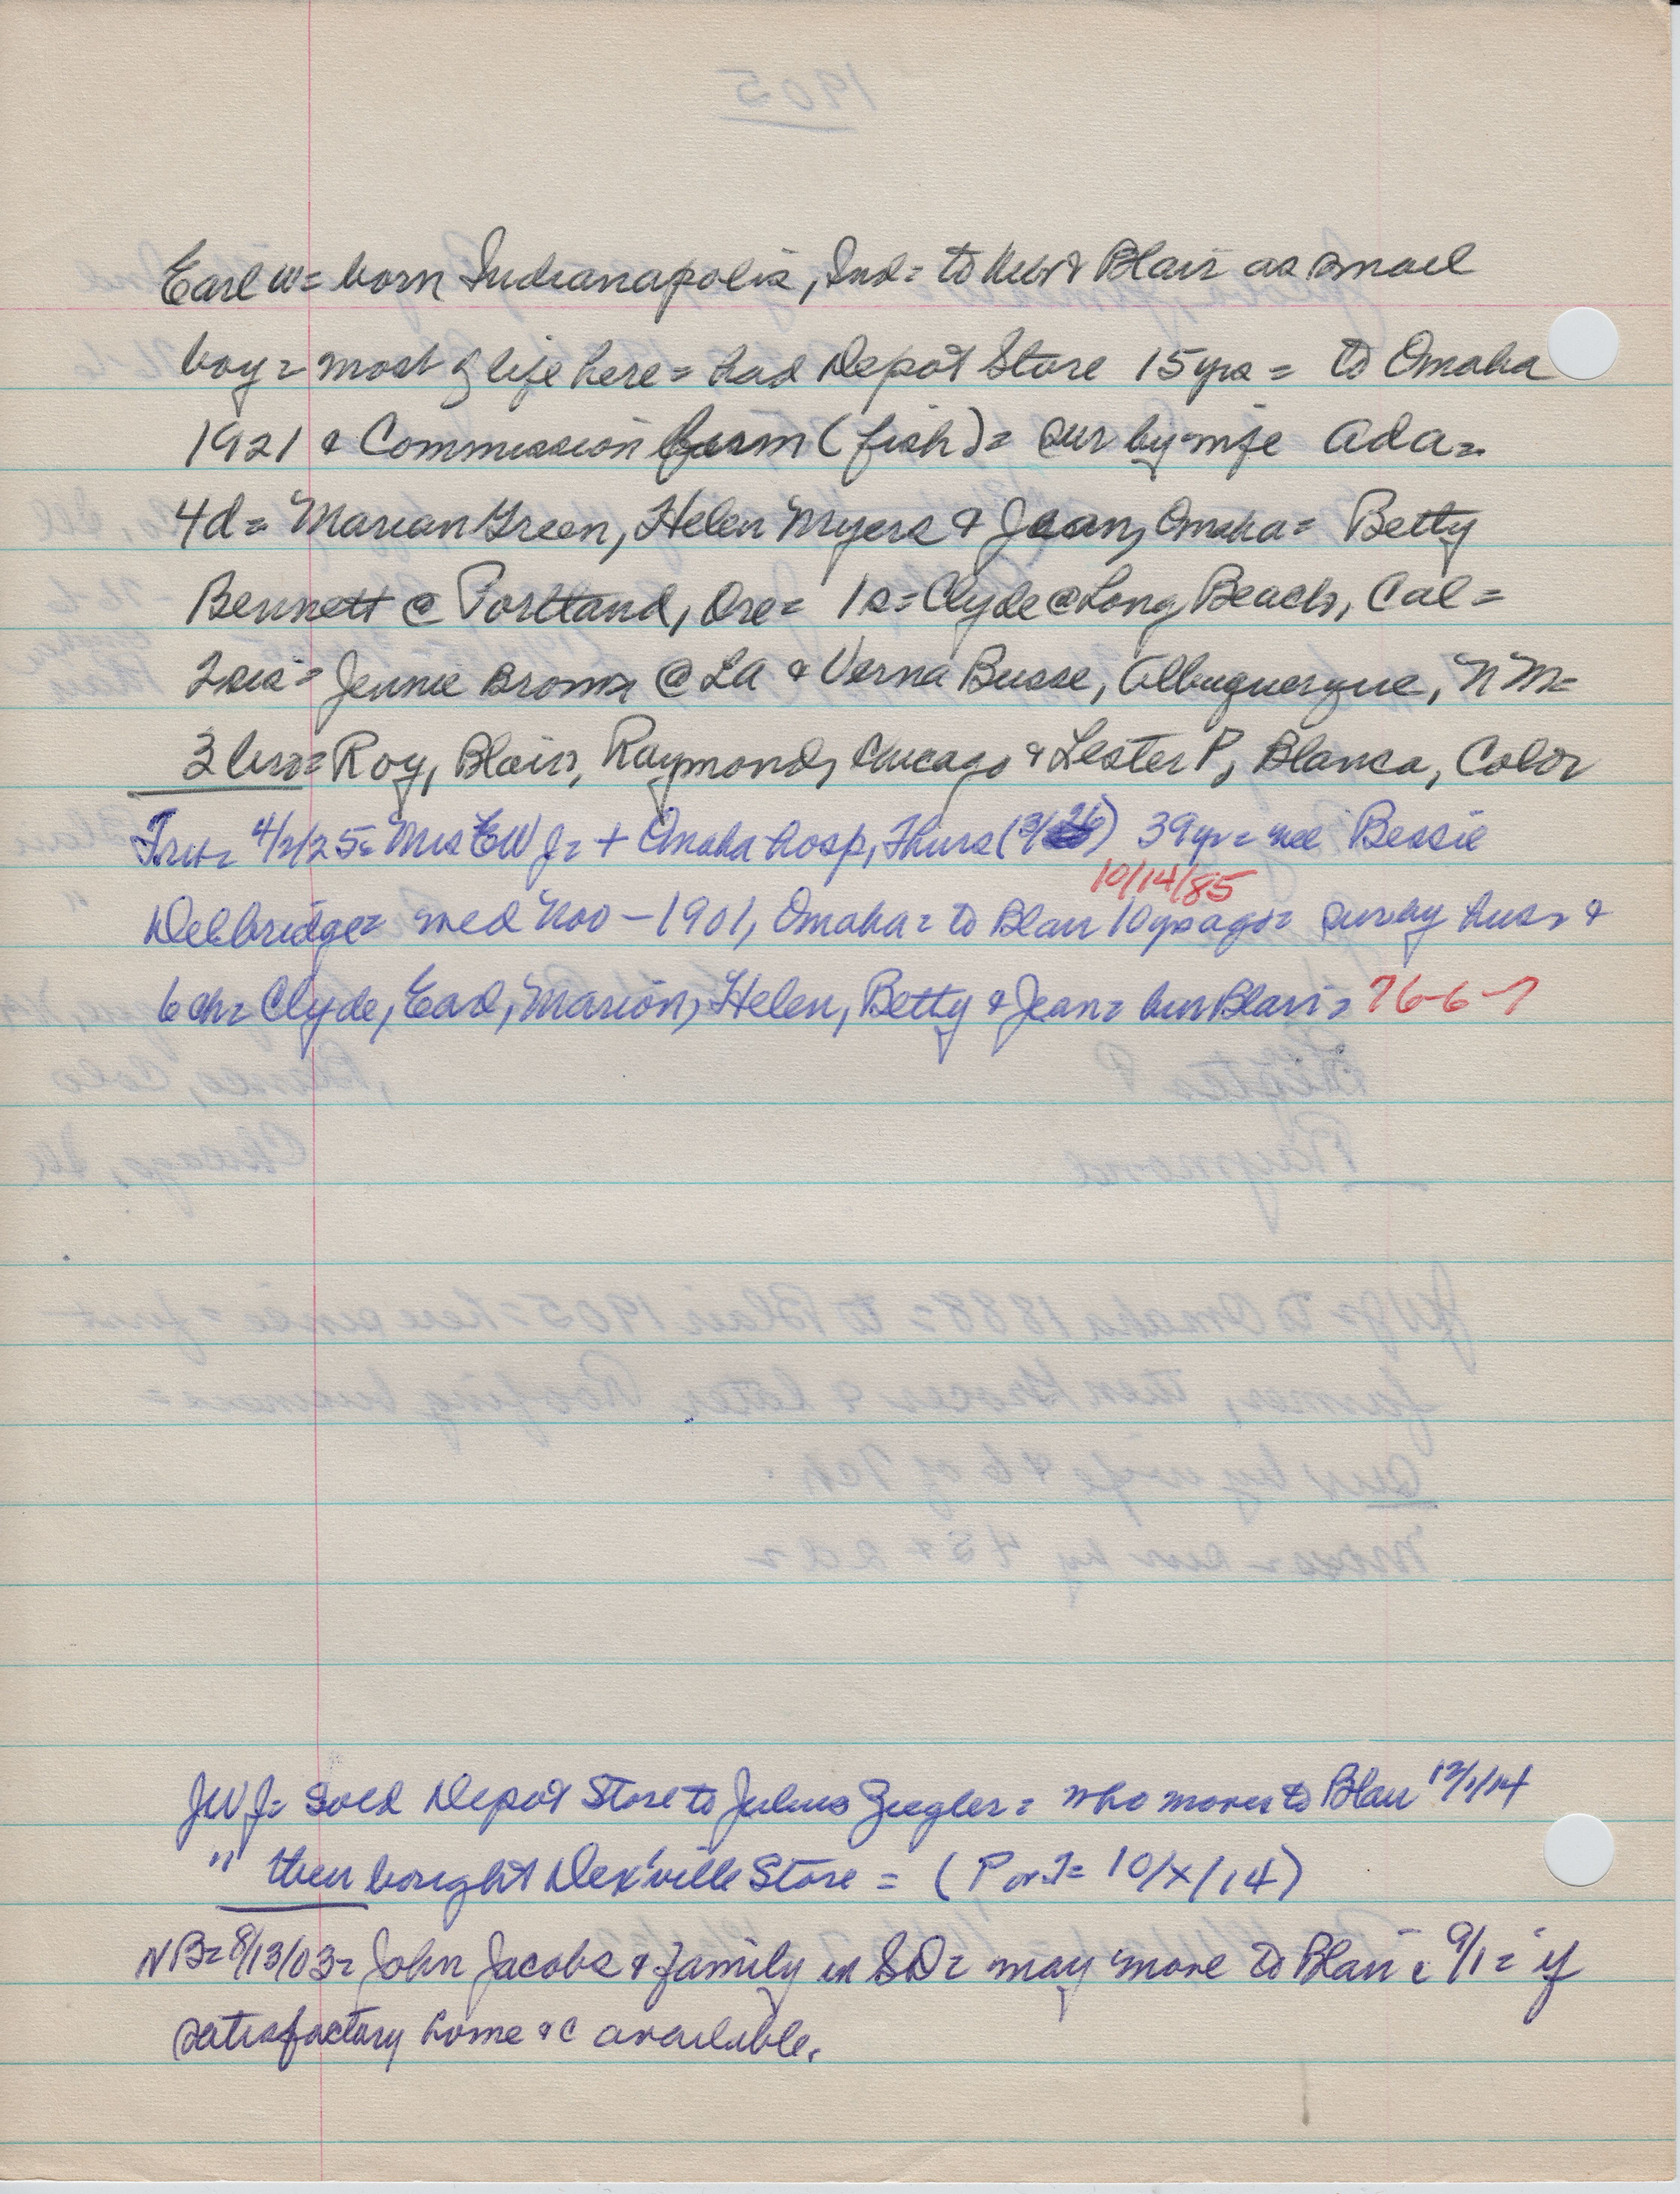 Earl W = born Indianapolis, Ind = to Neb & Blair as small
boy = most of life here = had Depot Store 15 yrs = to Omaha
1921 & Commission firm (fish) = sur by wife Ada =
4d = Marian Green, Helen Myers & Jean, Omaha = Betty
Bennett @ Portland, Ore = 1s = Clyde @ Long Beach, Cal =
2 sis = Jennie Brown @ LA & Verna Busse, Albuquerque, NM =
3 bros = Roy, Blair, Raymond, Chicago & Lester P, Blanca, Color
4/2/25 = Mrs EW J = + Omaha hosp, Thurs (3/26) 39 yr = nee Bessie
10/14/85
Delbridge = med Nov - 1901, Omaha = to Blair 10 yrs ago = sur by hus &
6 ch = Clyde, Earl, Marion, Helen, Betty & Jean = bur Blair = 76-6-7
JWJ = sold Depot Store to Julius Ziegler = who moves to Blair 12/1/14
" then bought Dex'ville Store = (P 10/x/14)
NB = 8/13/03 = John Jacobs & family in SD = may move to Blair c 9/1 = if
satisfactory home &c available.